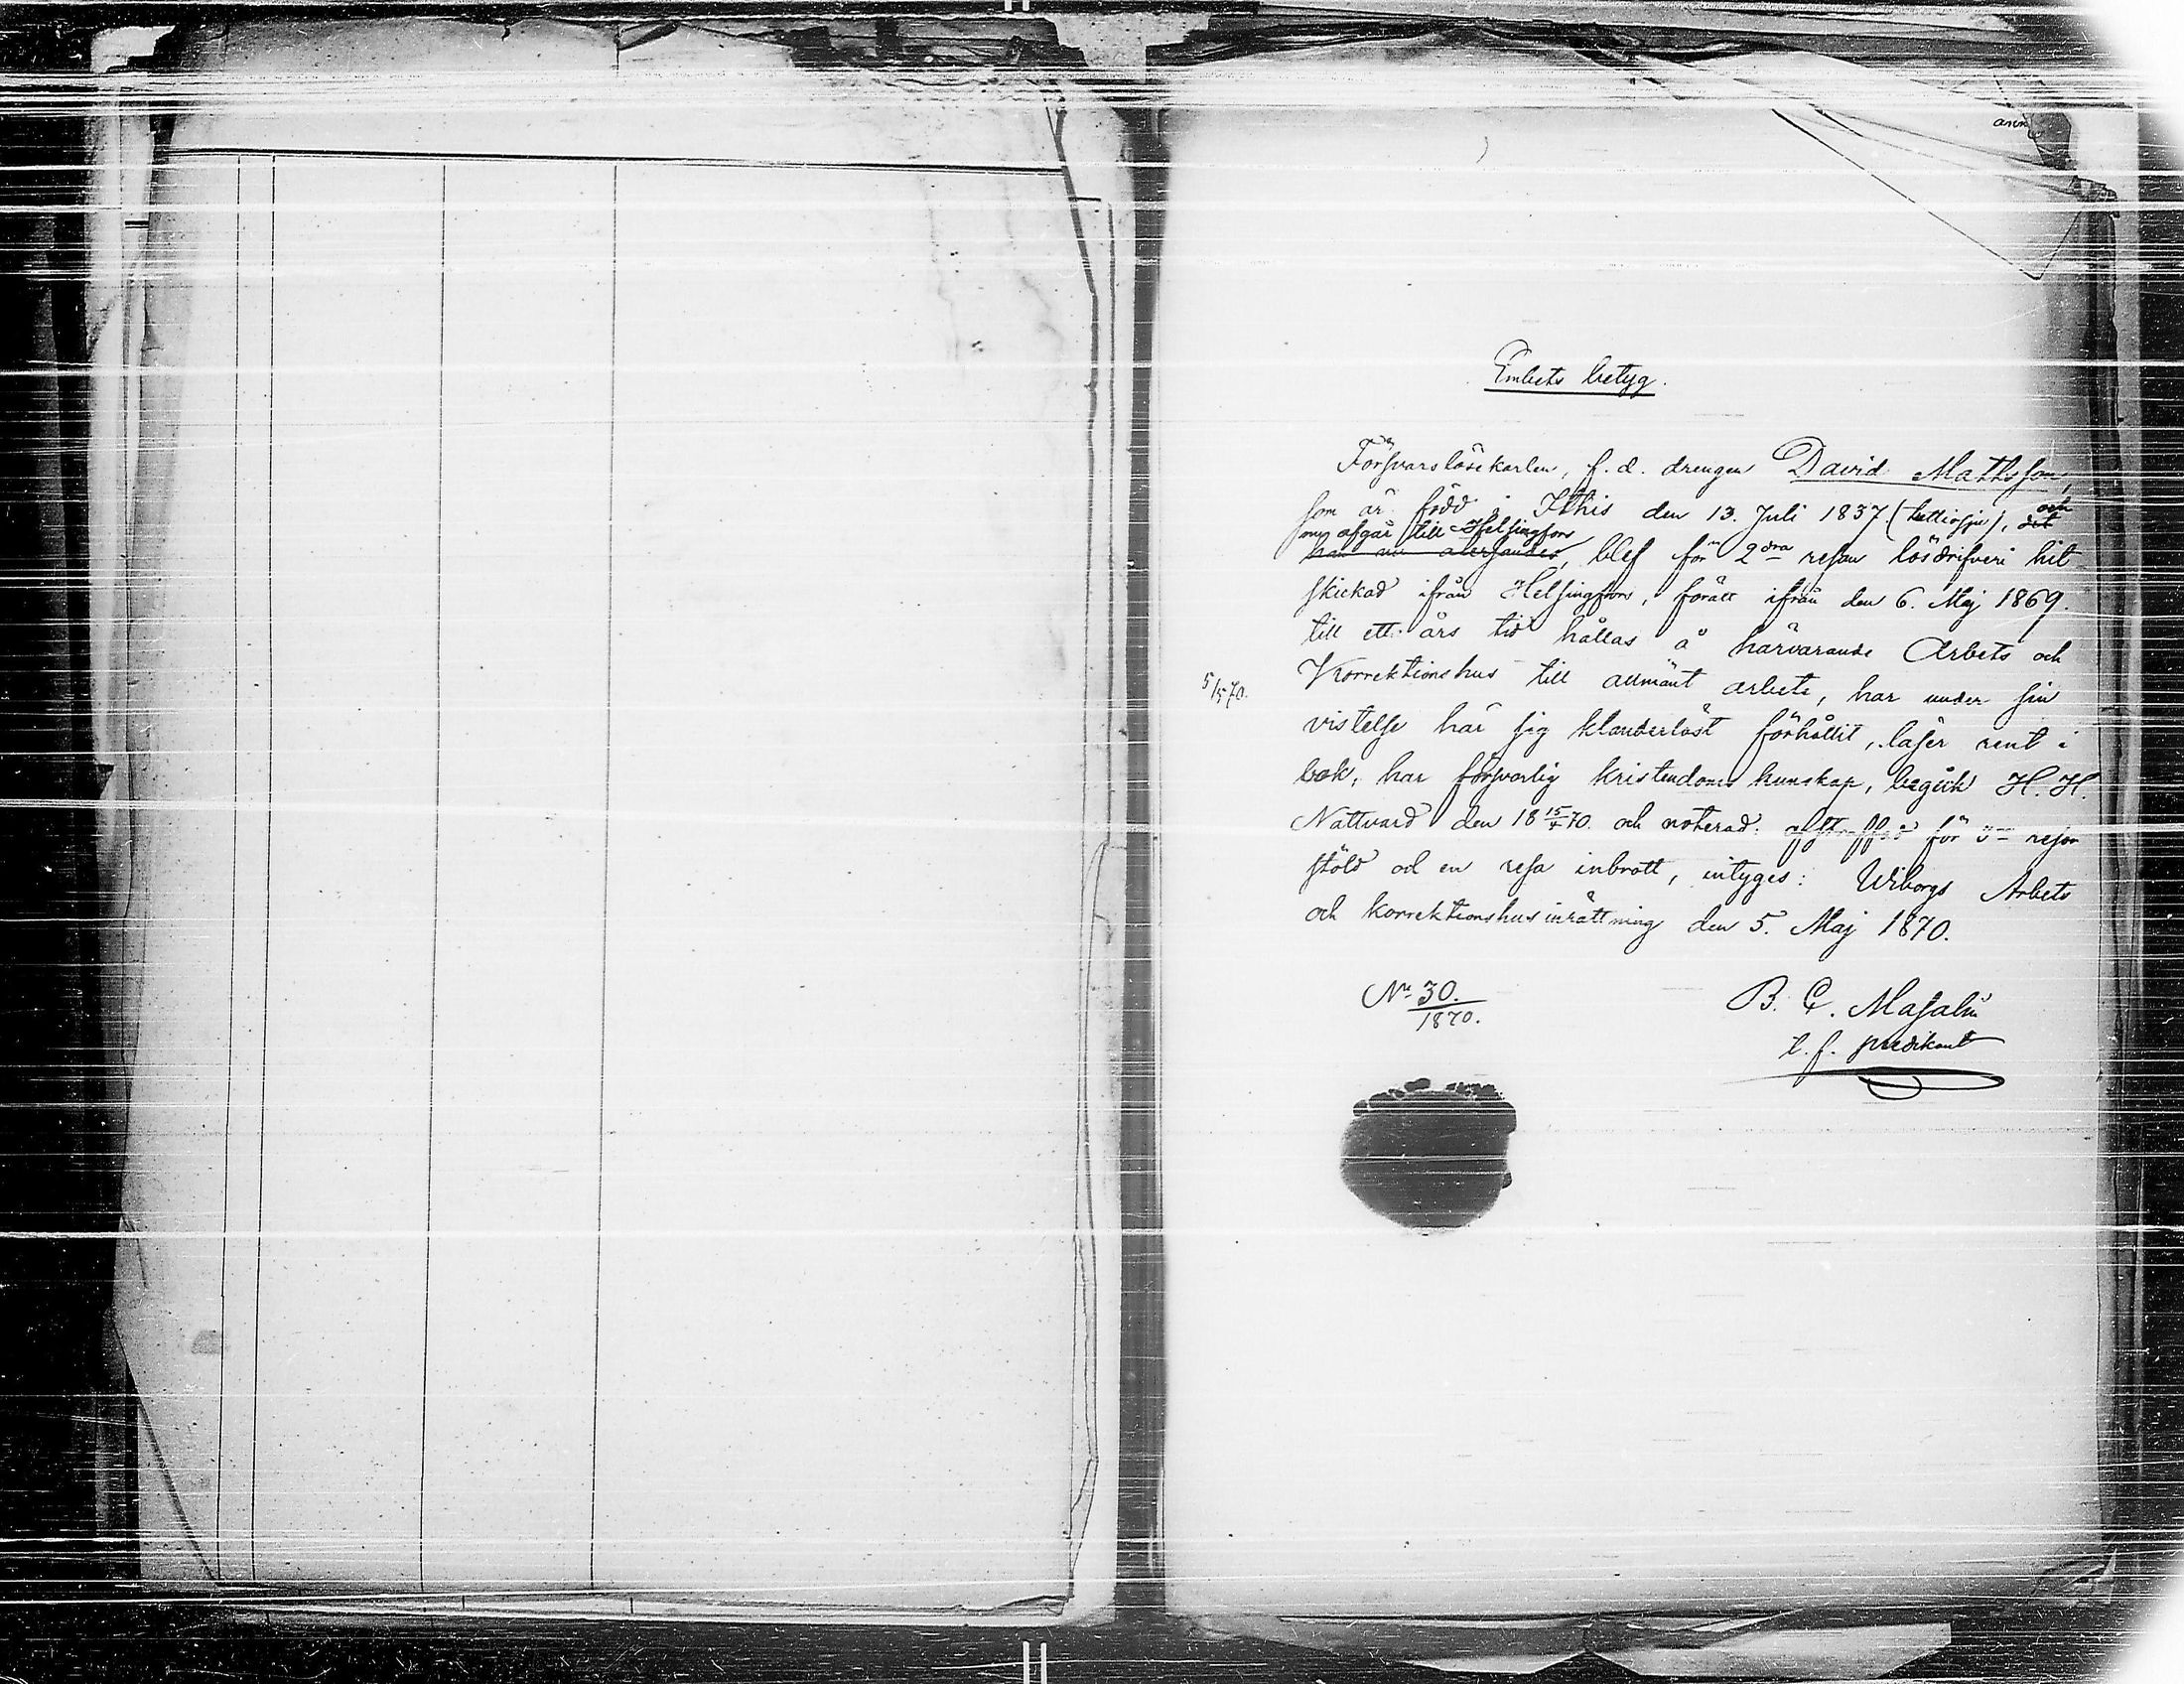 ann
Embets betyg.
Försvarslösekarlen, f. d. drengen David Mathsson,
som är född i Ithis den 13. Juli 1837. (trettiosju), och
som afgår till Helsingfors
blef för 2dra resan lösdrifveri hit
skickad ifrån Helsingfors, föratt ifrån den 6. Maj 1869.
till ett års tid hållas å härvarande Arbets och
Korrektionshus till allmänt arbete, har under sin
5/5 70.
vistelse här sig klanderlöst förhållit, läser rent i
bok, har försvarlig kristendoms kunskap, begick H. H.
Nattvard den 18 15/4 70. och noterad: afstraffad för 3e resan
stöld och en resa inbrott, intyges: Wiborgs Arbets
och korrektionshusinrättning den 5. Maj 1870.
No 30.
1870.
B. C. Masalin
t. f. predikant